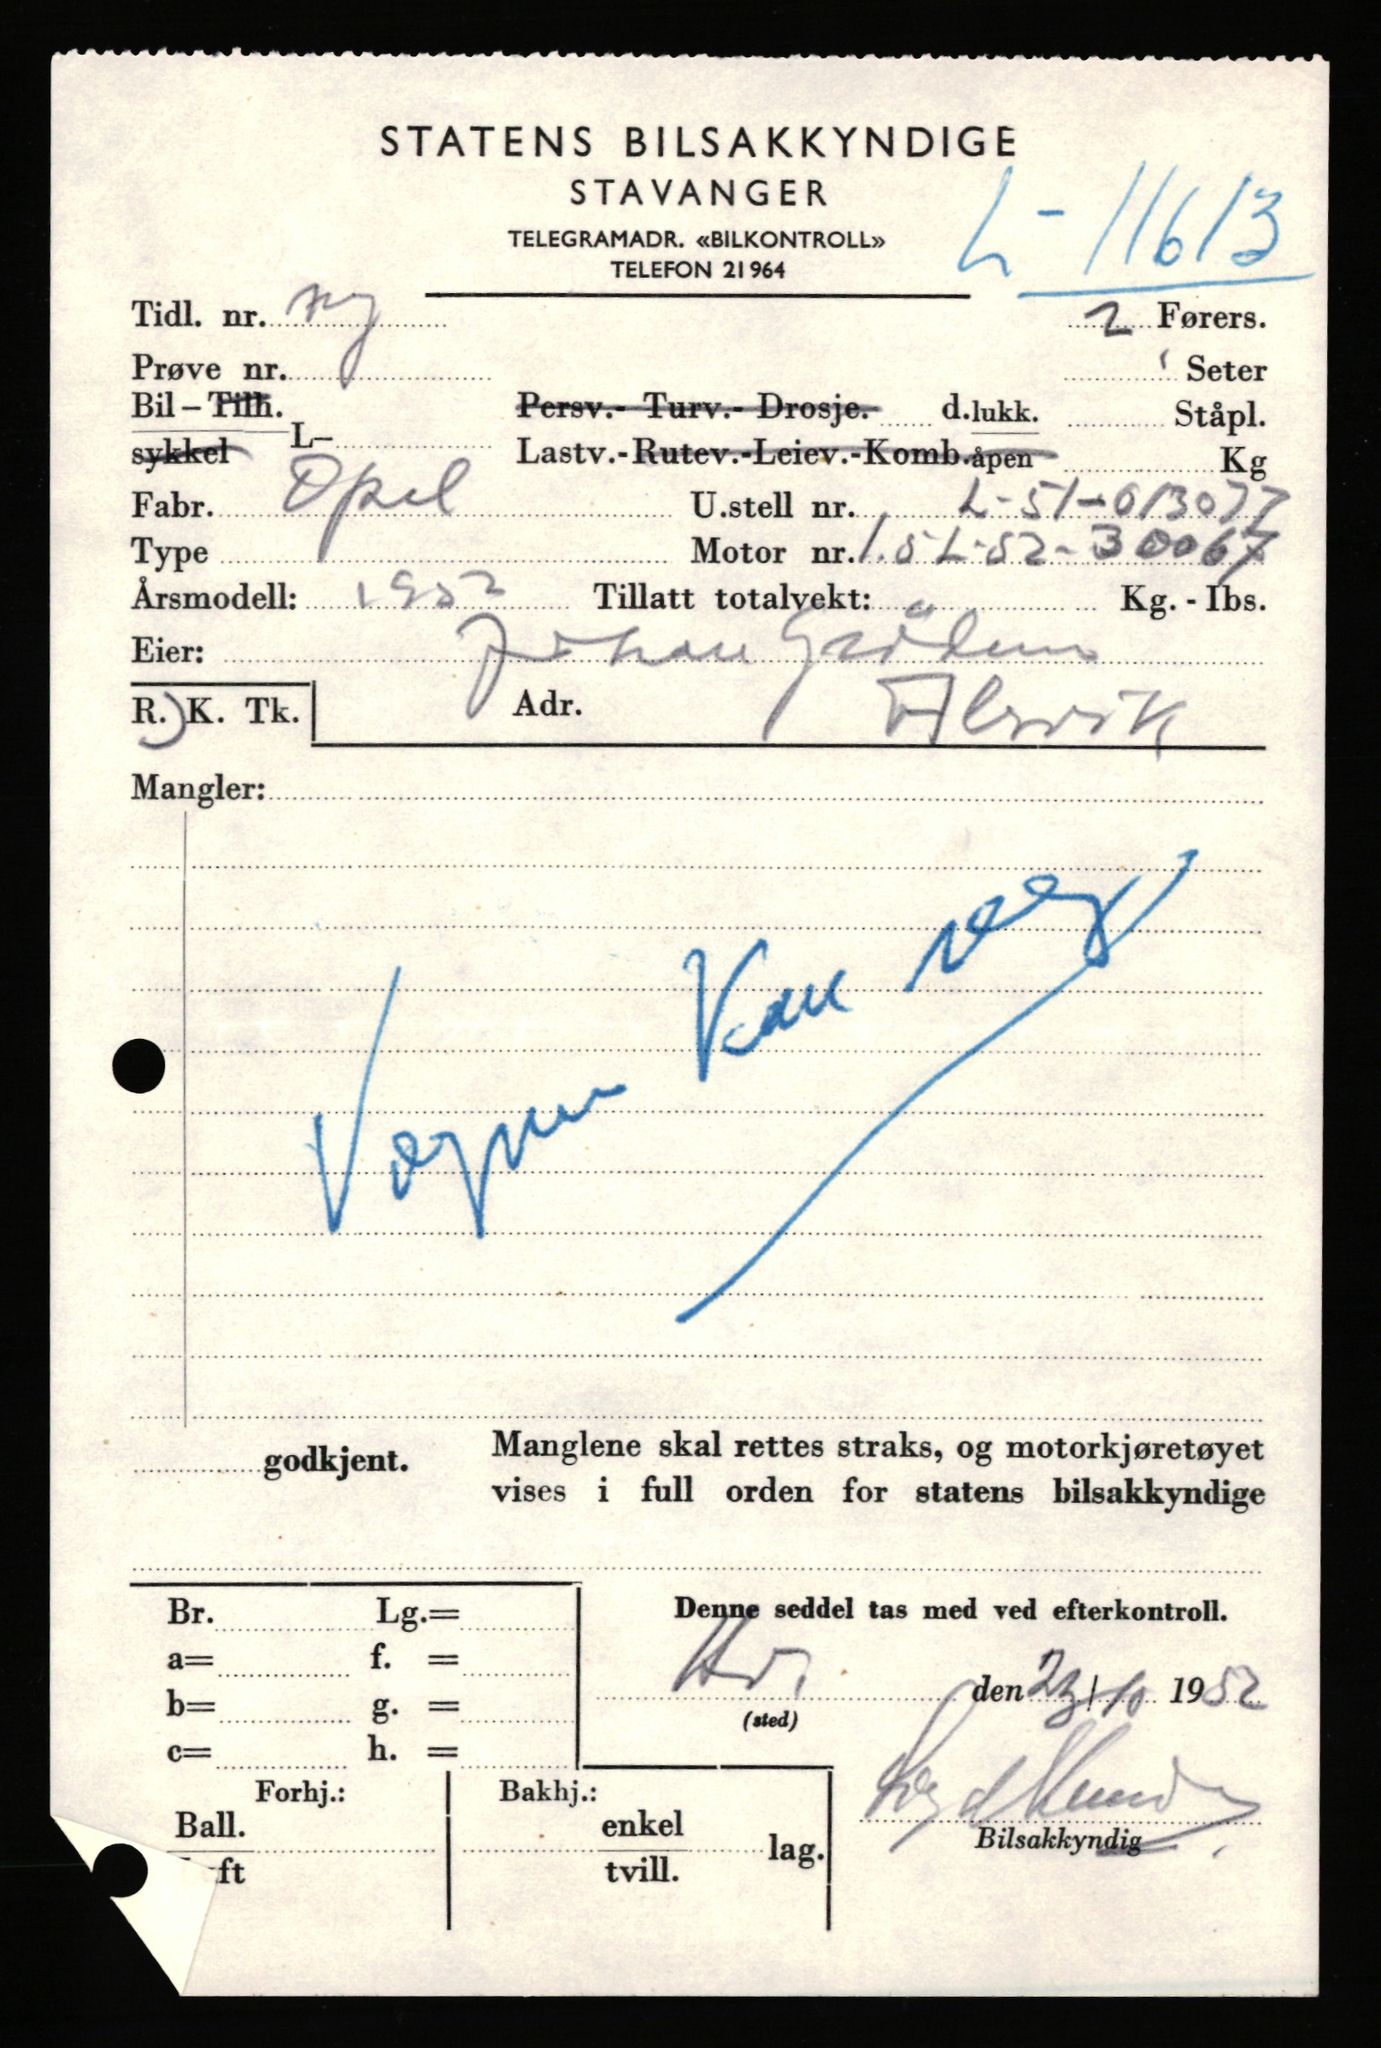 STATENS BILSAKKYNDIGE
STAVANGER
TELEGRAMADR. «BILKONTROLL»
TELEFON 21964
L-11613
Tidl. nr. ny
2 Førers.
Prøve nr.
Seter
Bil - Tilh. Persv.- Turv.- Drosje. d.lukk. Ståpl.
sykkel L- Lastv.-Rutev.-Leiev.-Komb.åpen Kg
Fabr. Opel U.stell nr. L-51-013077
Type Motor nr. 1.5L-52-30067
Årsmodell: 1952 Tillatt totalvekt: Kg. - lbs.
Eier: Johan
R. K. Tk. Adr.
Mangler:
Vognen kan reg
godkjent. Manglene skal rettes straks, og motorkjøretøyet
vises i full orden for statens bilsakkyndige
Br. Lg.= Denne seddel tas med ved efterkontroll.
a= f. =
den 23/10 1952
b= g. = (sted)
c= h. =
Forhj.: Bakhj.:
Ball. enkel lag. Bilsakkyndig
ft tvill.